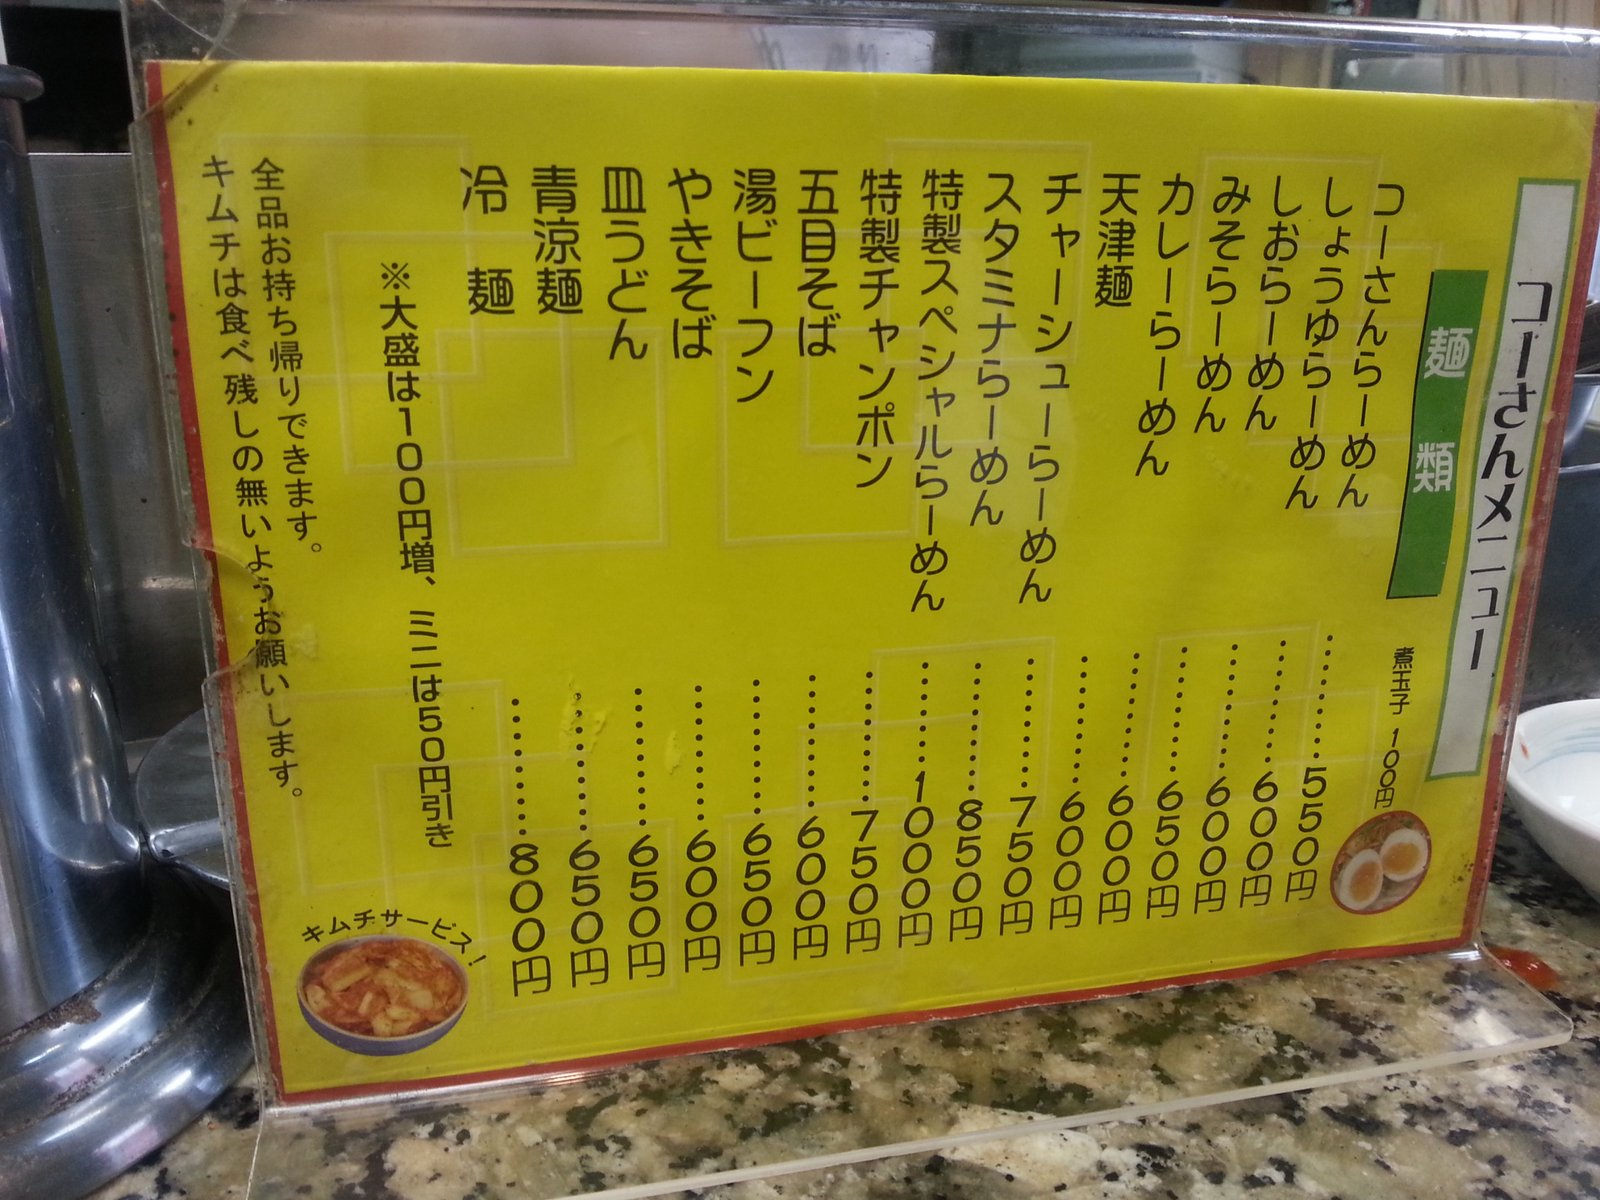 コーさんメニュー
麺類
煮玉子 100円
コーさんらーめん…………550円
しょうゆらーめん…………600円
しおらーめん…………600円
みそらーめん…………650円
カレーらーめん…………600円
天津麺…………600円
チャーシューらーめん…………750円
スタミナらーめん…………850円
特製スペシャルらーめん………1000円
特製チャンポン…………750円
五目そば…………600円
湯ビーフン…………650円
やきそば…………600円
皿うどん…………650円
青涼麺…………650円
冷麺…………800円
※大盛は100円増、ミニは50円引き
全品お持ち帰りできます。
キムチは食べ残しの無いようお願いします。
キムチサービス!